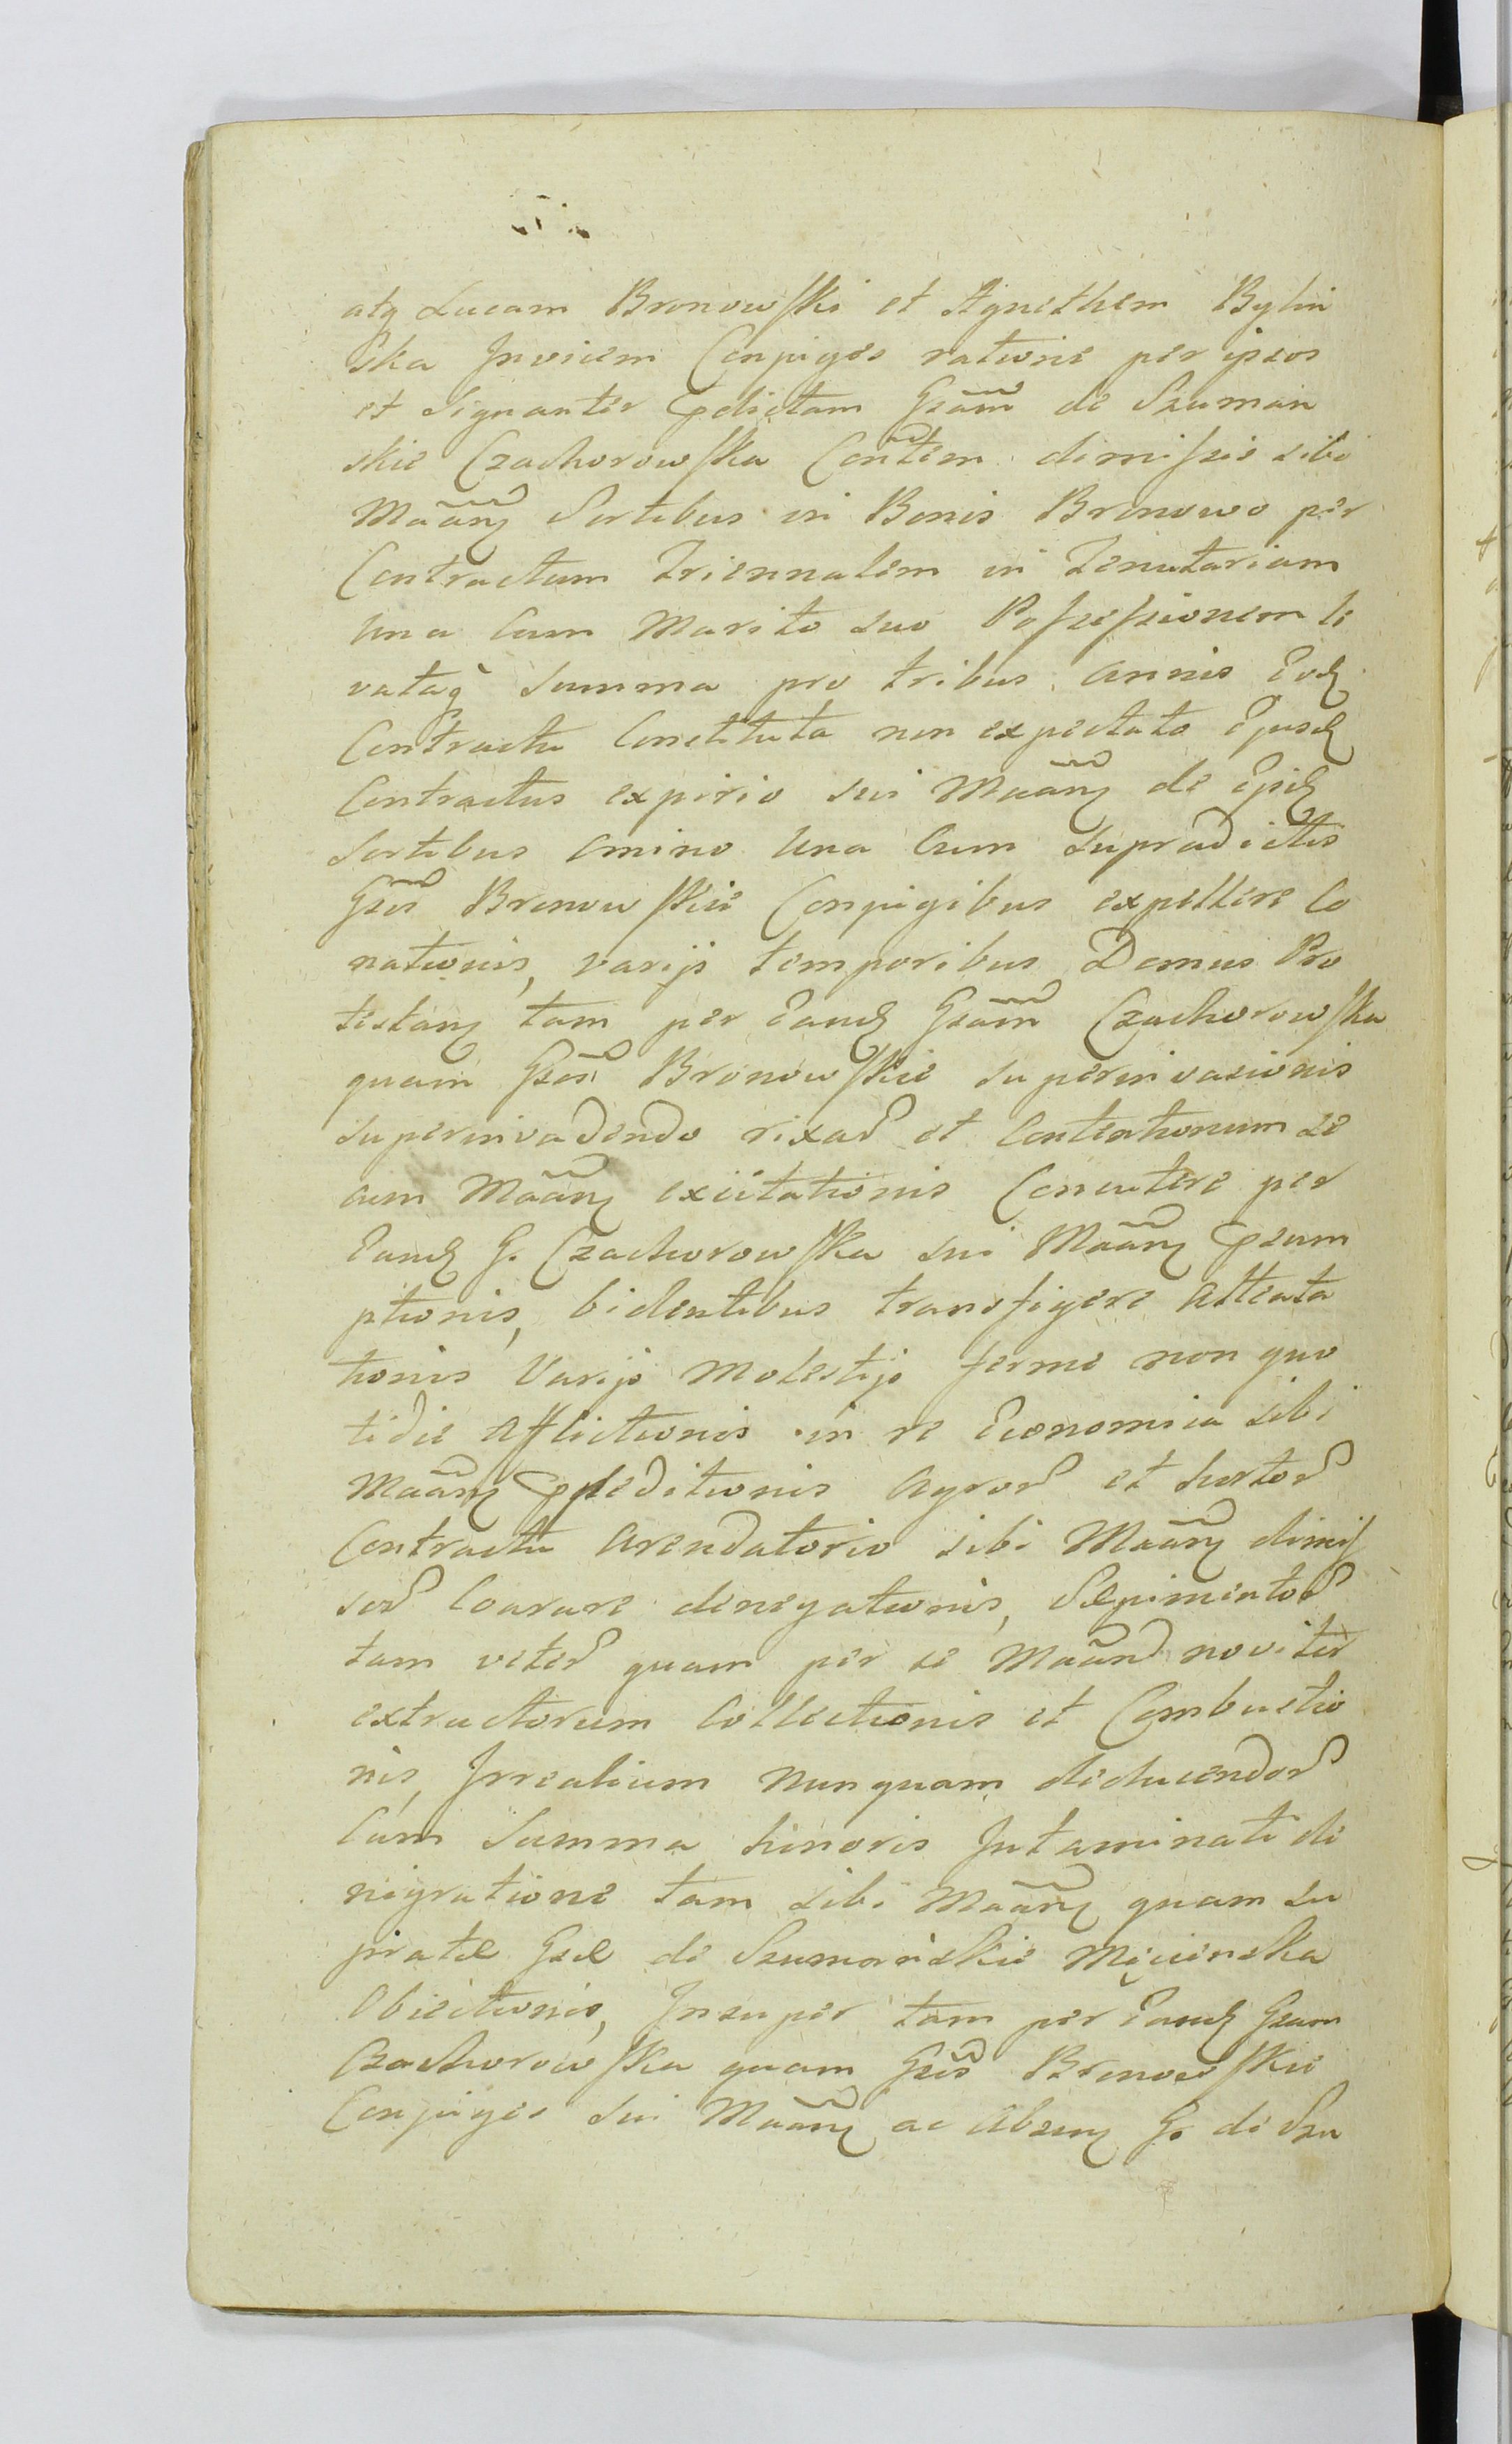 atq Lucam Bronowski et Agnethem Bylin
ska Invicem Conjuges ratione per ipsos
et Signanter pdictam Gsam de Szuman
skie Czachorowska Contem dimissis sibi
Maan Sortibus in Bonis Bronowo per
Contractum Triennalem in Tenutariam
una cum Marito suo Possessionem le
vataq Summa pro tribus annis Eod
Contractu Constituta non expectato Ejusd
Contractus expirio sui Maan de Ejsd
Sortibus omino una cum Supradictis
Gsis Bronowskie Conjugibus expellere Co
nationis, varijs temporibus Domus Pro
testan tam per Eand Gsam Czachorowska
quam Gsos Bronowskie superinvasionis
superinvadendo rixar et Contentionum se
cum Maan excitationis Concutere per
Eand G. Czachorowska sui Maan psum
ptionis, bidentibus transfigere attenta
tionis Varijs Molestijs ferme non quo
tidie afflictionis in re Economica sibi
Maan ppeditionis agror et hortor
Contractu Arendatorio sibi Maan dimis
sor Coarare denegationis, Sepimentor
tam veter quam per se Maan noviter
extructorum Collectionis et Combustio
nis, Irrealium nunquam deducendor
Cum Summa honoris Intaminati de
nigratione tam sibi Maan quam su
pratae Gsae de Szumańskie Męcinska
Obiectionis, Insuper tam per Eand Gsam
Czachorowska quam Gsos Bronowskie
Conjuges sui Maan ac Absen G. de Szu